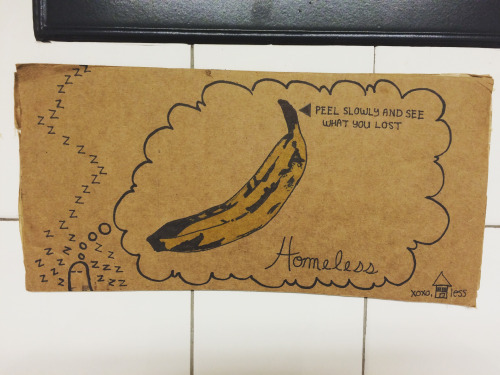 PEEL SLOWLY AND SEE
WHAT YOU LOST
Homeless
xoxo, less
z z z z z z z z z z z z z z z z z z z z z z z z z z z z z z